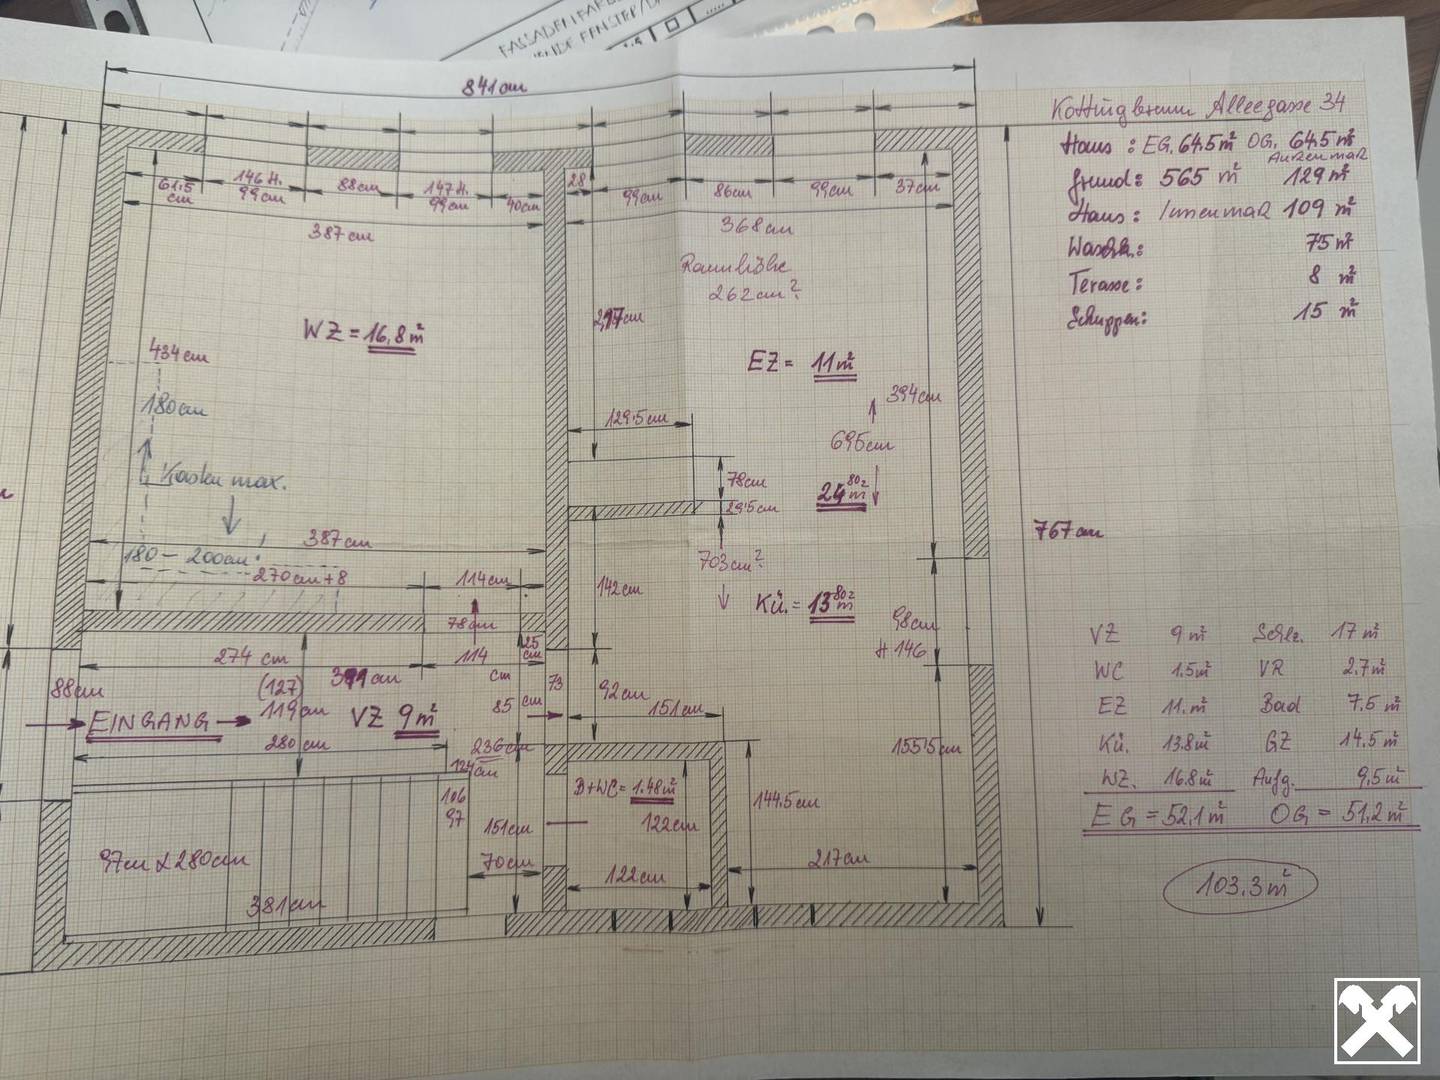 FASSADENFARBE
FENSTER/
841cm
Kottingbrunn Alleegasse 34
Haus: EG. 64.5m² OG. 64.5m²
Außenmaß
Grund: 565 m² 129m²
Haus: Innenmaß 109 m²
Waschk.: 75m²
Terasse: 8 m²
Schuppen: 15 m²
61.5 cm
146 H.
99cm
88cm
147 H.
99cm
40cm
28
99cm
86cm
99cm
37cm
387cm
368cm
Raumhöhe
262cm?
WZ = 16,8m²
EZ = 11m²
434cm
180cm
Kasten max.
394cm
129.5cm
695cm
78cm
24.80z m
29.5cm
387cm
180 - 200cm
270cm+8
114cm
703cm?
142cm
Kü. = 13 80z m
767cm
78cm
98cm
H 146
25 cm
274 cm
114 cm
(127)
119cm
88cm
EINGANG
VZ 9m²
85 cm
73
92cm
151cm
280cm
236cm
124cm
155.5cm
B+WC = 1.48m²
106
97
151cm
122cm
144.5cm
97cm x 280cm
70cm
122cm
217cm
381cm
VZ 9m² Schlz. 17 m²
WC 1.5m² VR 2.7m²
EZ 11.m² Bad 7.5m²
Kü. 13.8m² GZ 14.5m²
WZ. 16.8m² Aufg. 9.5m²
EG = 52,1m² OG = 51,2m²
103.3m²